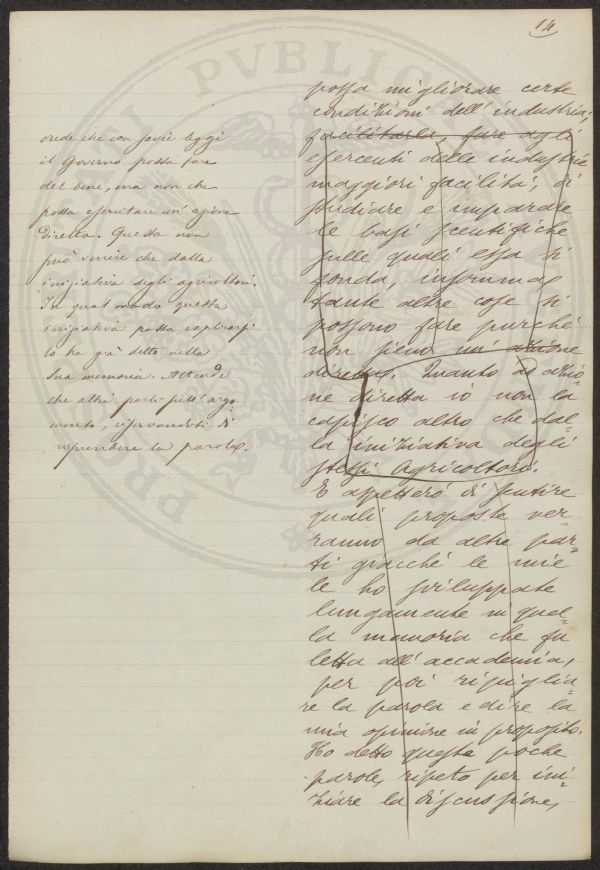 14
possa migliorare certe
condizioni dell'industria,
facilitarla, fare agli
esercenti delle industrie
maggiori facilità, di
studiare e imparare
le basi scentifiche
sulle quali essa si
fonda, insomma
tante altre cose si
possono fare purchè
non sieno un'azione
diretta. Quanto ad azio-
ne diretta io non la
capisco altro che dal-
la iniziativa degli
stessi Agricoltori.
E aspetterò di sentire
quali proposte ver-
ranno da altre par-
ti giacchè le mie
le ho sviluppate
lungamente in quel-
la memoria che fu
letta all'accademia,
per poi ripiglia-
re la parola e dire la
mia opinione in proposito.
Ho detto queste poche
parole, ripeto per ini-
ziare la discussione,
crede che con savie leggi
il Governo possa fare
del bene, ma non che
possa esercitare un'azione
diretta. Questa non
può venire che dalla
iniziativa degli agricoltori.
In qual modo questa
iniziativa possa esplicarsi
lo ha già detto nella
sua memoria. Attende
che altri parli sull'argo
mento, riservandosi di
riprendere la parola.